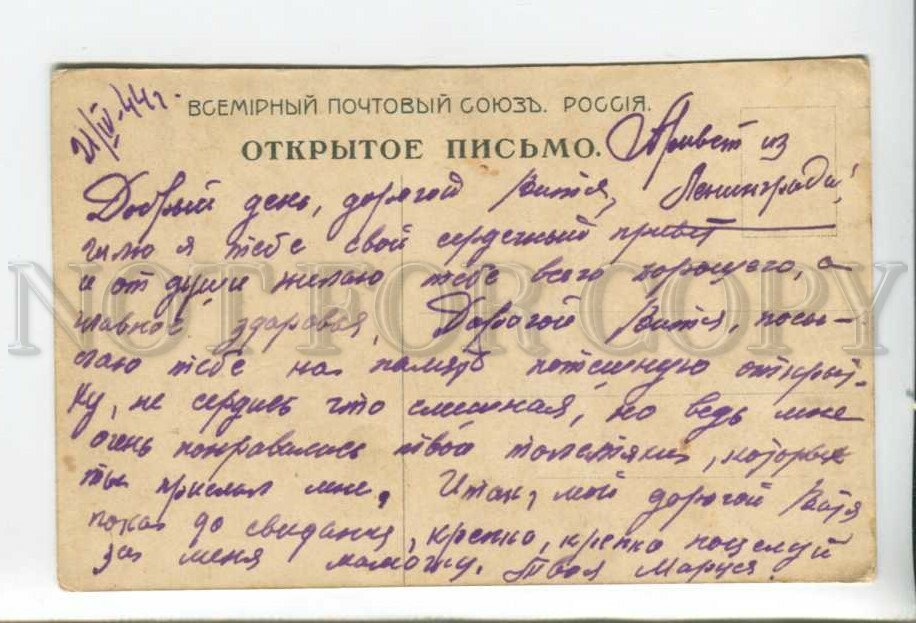 21/IV-44 г.
ВСЕМІРНЫЙ ПОЧТОВЫЙ СОЮЗЪ. РОССІЯ.
ОТКРЫТОЕ ПИСЬМО.
Привет из
Ленинграда!
Добрый день, дорогой Витя,
шлю я тебе свой сердечный привет
и от души желаю тебе всего хорошего, а
главное здоровья, Дорогой Витя, посы-
лаю тебе на память потешную открыт-
ку, не сердись что смешная, но ведь мне
очень понравились твои толстяки, которых
ты прислал мне. Итак, мой дорогой Витя
пока до свидания, крепко, крепко поцелуй
за меня мамочку. Твоя Маруся.
NOT FOR COPY